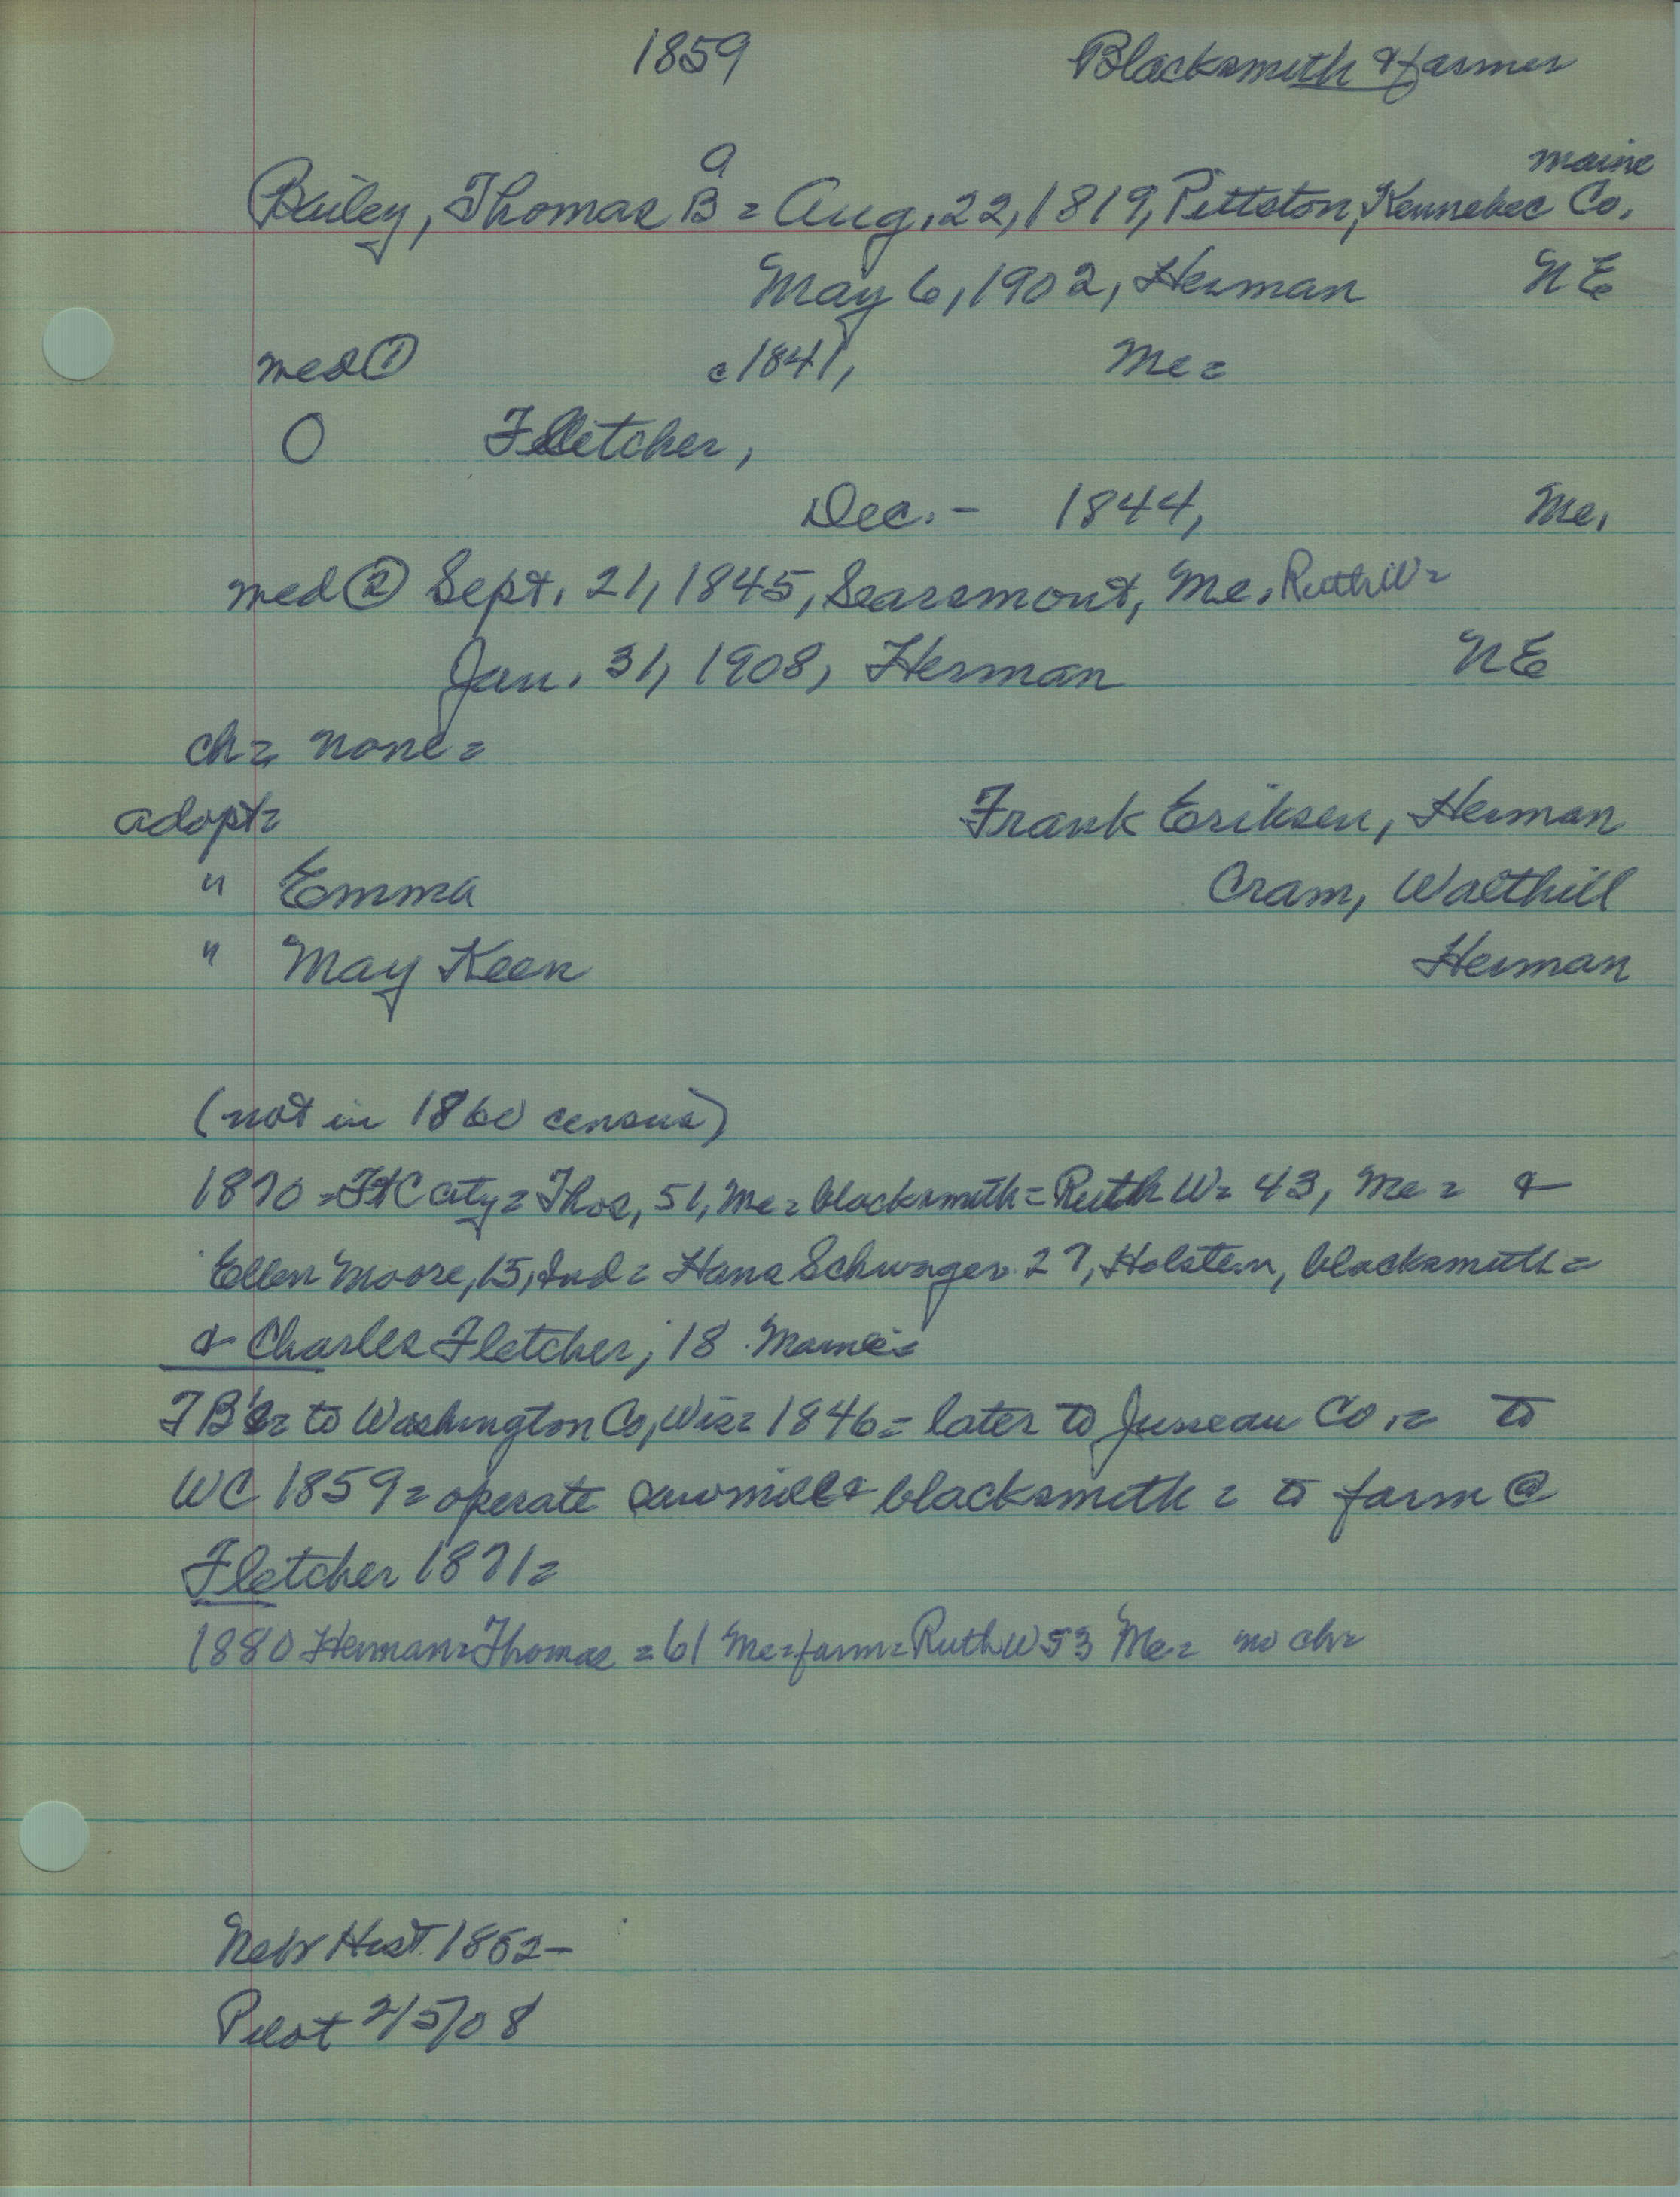 1859 Blacksmith & farmer
a maine
Bailey, Thomas B = Aug. 22, 1819, Pittston, Kennebec Co.
May 6, 1902, Herman NE
med ① c 1841, Me =
O Fletcher,
Dec. - 1844, Me.
med ② Sept. 21, 1845, Searsmont, Me. Ruth W =
Jan. 31, 1908, Herman NE
ch = none =
adopt = Frank Eriksen, Herman
" Emma Cram, Walthill
" May Keen Herman
(not in 1860 census)
1870 = Ft C City = Thos, 51, Me = blacksmith = Ruth W = 43, Me = &
Ellen Moore, 15, Ind = Hans Schwager 27, Holstein, blacksmith =
& Charles Fletcher, 18 Maine =
TB's = to Washington Co, Wis = 1846 = later to Juneau Co. = to
WC 1859 = operate sawmill & blacksmith = to farm @
Fletcher 1871 =
1880 Herman = Thomas = 61 Me = farm = Ruth W 53 Me = no ch =
Nebr Hist. 1882 -
Pilot 2/5/08